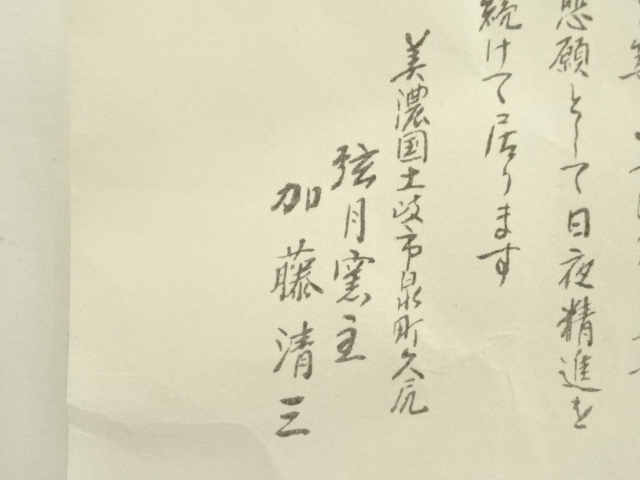 悲願として日夜精進を
続けて居ります
美濃国土岐市泉町久尻
弦月窯主
加藤清三